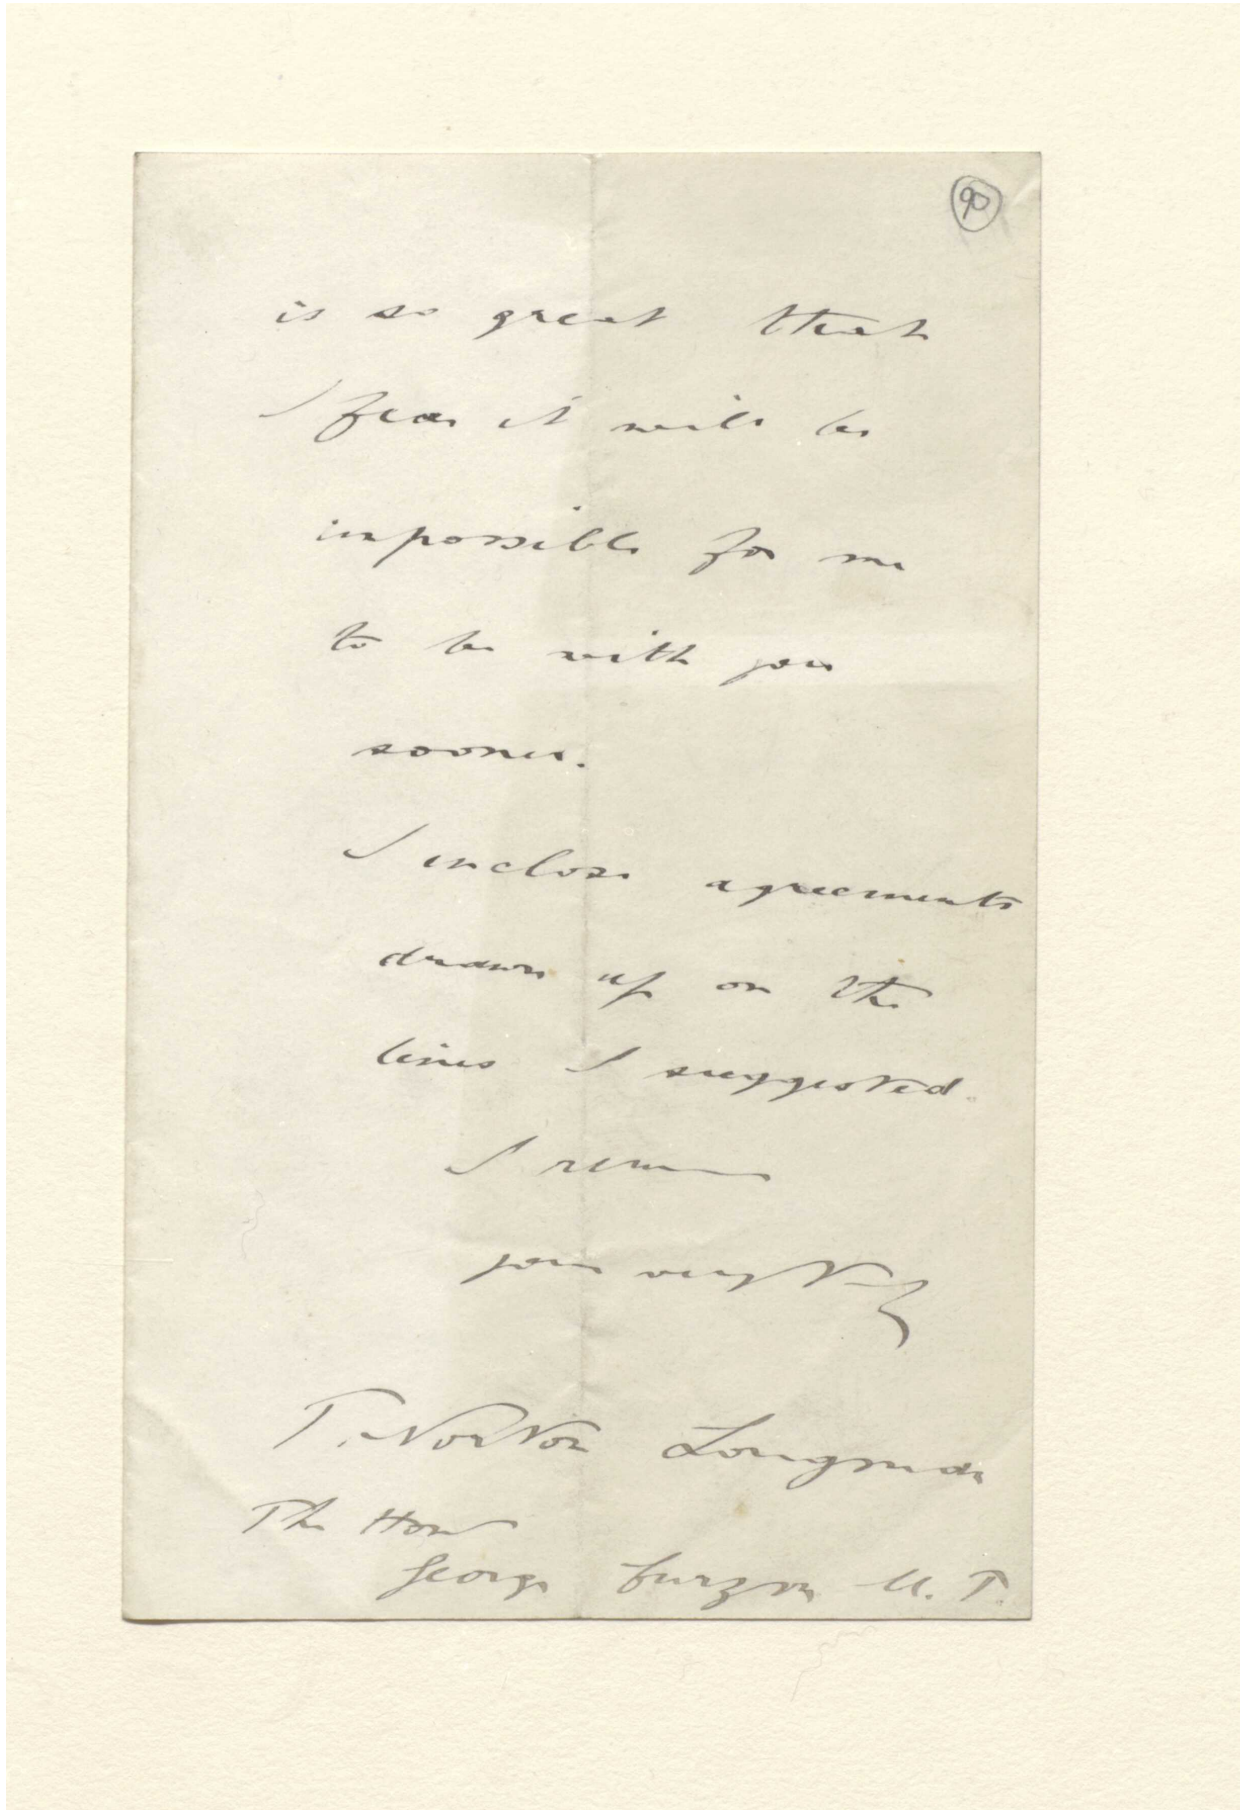 90
is so great that
I fear it will be
impossible for me
to be with you
sooner.
I enclose agreements
drawn up on the
lines I suggested.
I remain
yours very truly
T. Norton Longman
The Hon
George Curzon M.P.